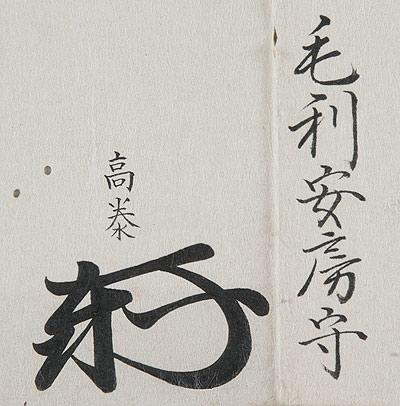 毛利安房守
高泰